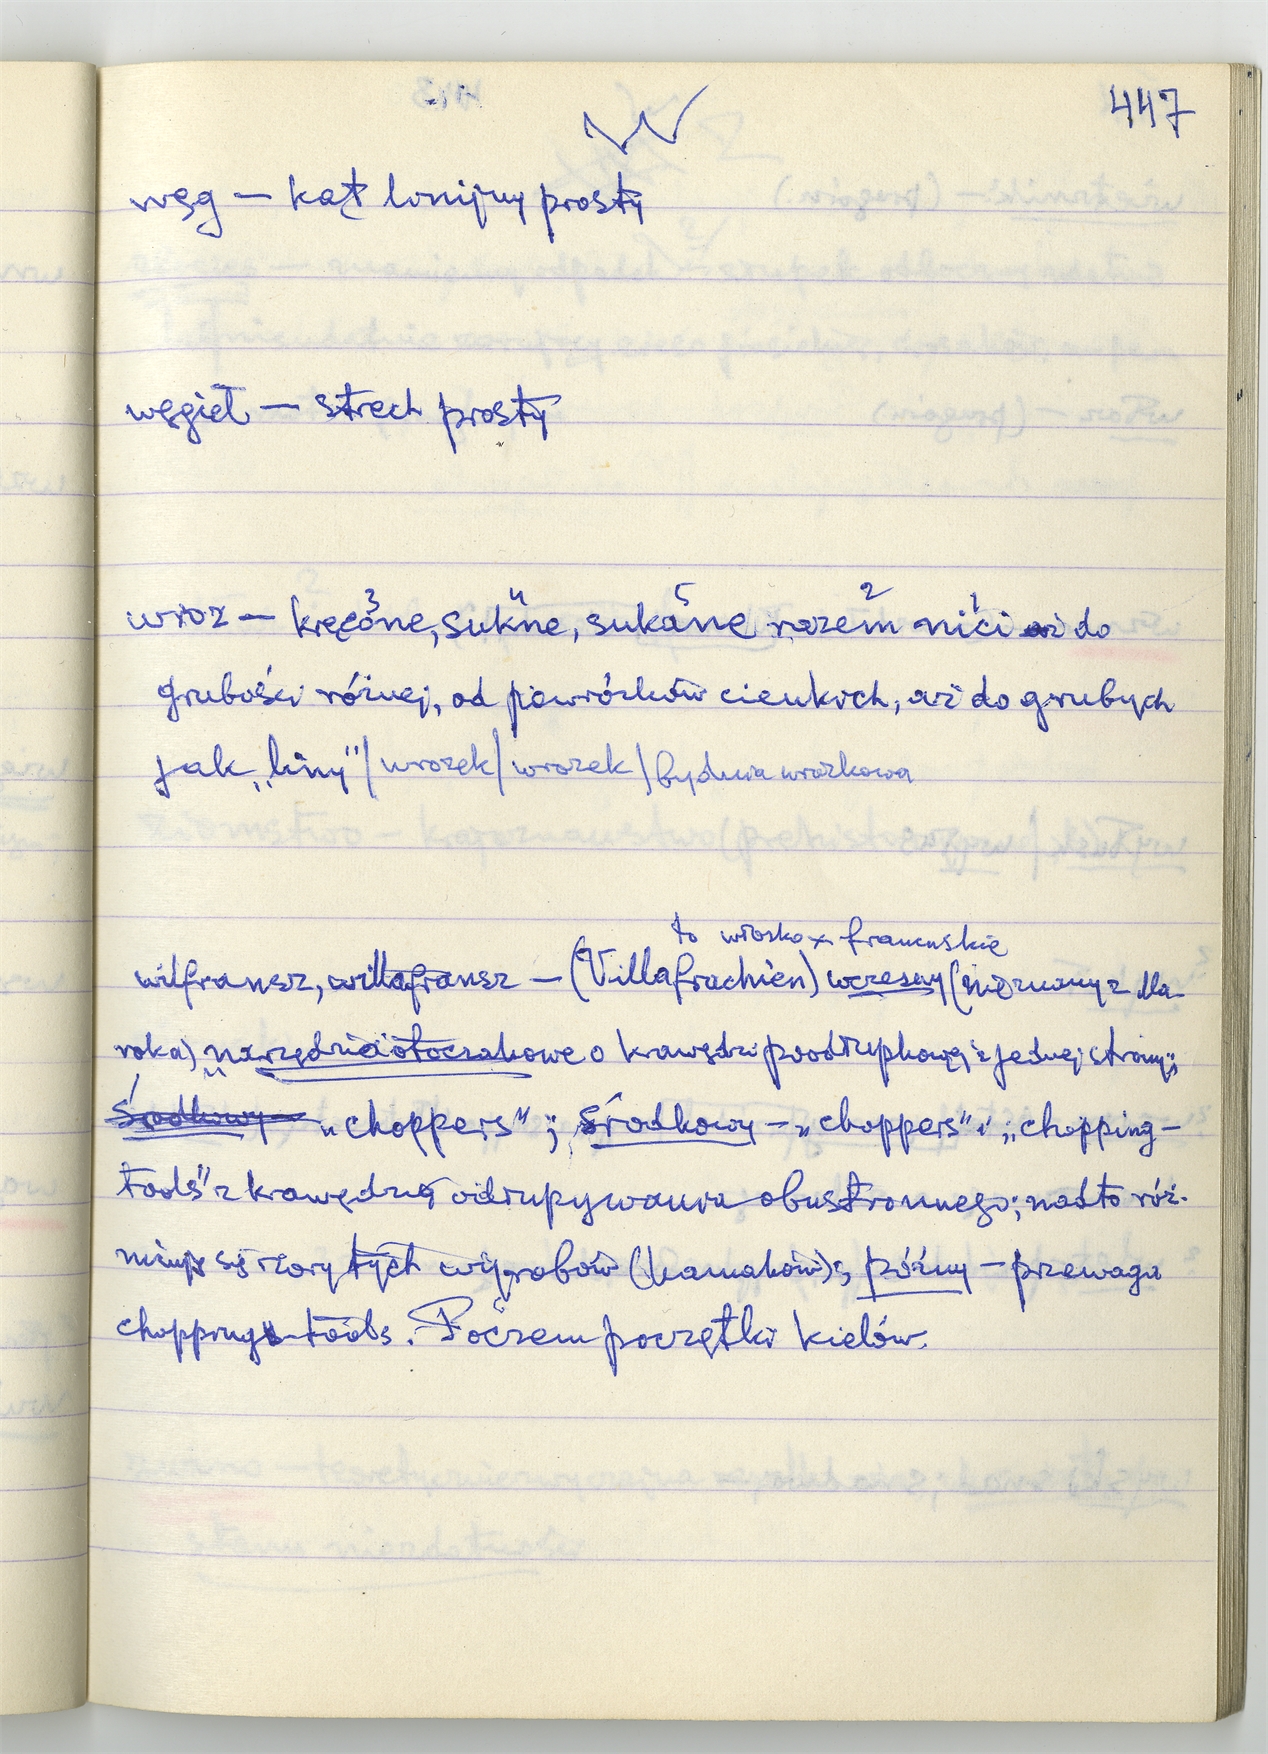 447
W
węg — kąt linijny prosty
węgieł — strech prosty
3 4 5 2 1
wroz — kręcone, sukne, sukane razem nici aż do
grubości różnej, od powrózków cienkich, aż do grubych
jak „liny” / wrozek / wrozek / bydwa wrozkowa
to włosko x francuskie
wilfransz, willafransz — (Villafrachien) wczesny (nieznany z Ma-
roka) „narzędzia otoczakowe o krawędzi poodłupkowej z jednej strony;
środkowy — „choppers”; środkowy — „choppers” i „chopping-
tools” z krawędzią odłupywania obustronnego; nadto róż-
nicują się wyrobów (kamaków); późny — przewaga
chopping tools. Poczem początki kielów.